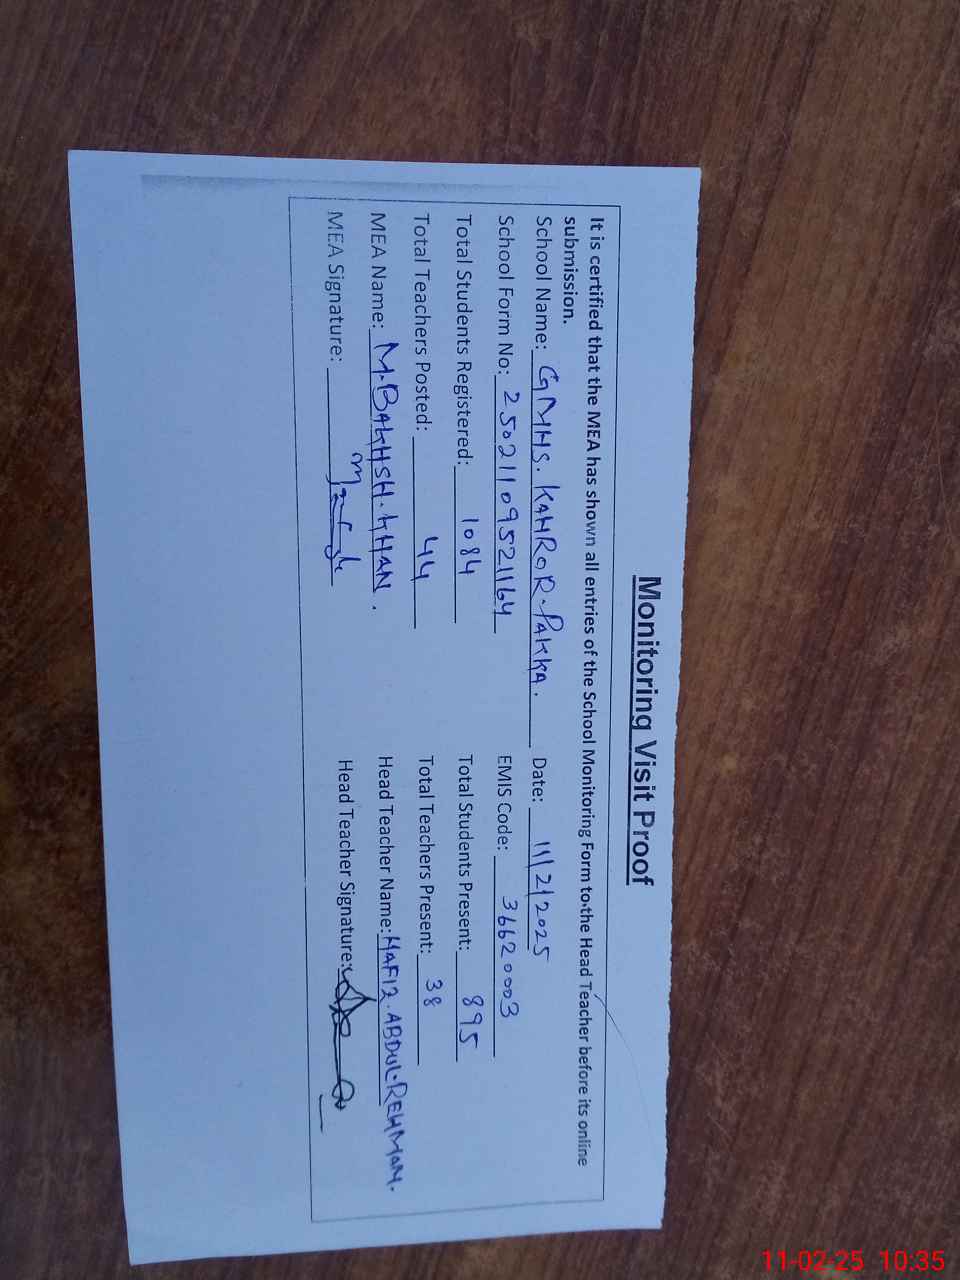 Monitoring Visit Proof
It is certified that the MEA has shown all entries of the School Monitoring Form to the Head Teacher before its online
submission.
School Name: GMHS. KAHROR. PAKKA. Date: 11/2/2025
School Form No: 25021109521164 EMIS Code: 36620003
Total Students Registered: 1084 Total Students Present: 895
Total Teachers Posted: 44 Total Teachers Present: 38
MEA Name: M. BAKHSH. KHAN. Head Teacher Name: HAFIZ. ABDUL. REHMAN.
MEA Signature: Head Teacher Signature:
11-02-25 10:35